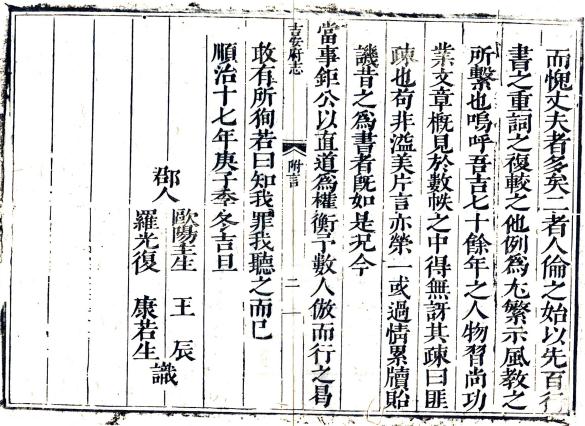 而愧丈夫者多矣二者人倫之始以先百行
書之重詞之複較之他例爲尤繁示風教之
所繫也嗚呼吾吉七十餘年之人物習尚功
業文章概見於數帙之中得無訝其疎曰匪
疎也苟非溢美片言亦榮一或過情累牘貽
譏昔之爲書者旣如是況今
當事鉅公以直道爲權衡予數人倣而行之曷
吉安府志 附言 二
敢有所徇若曰知我罪我聽之而已
順治十七年庚子季冬吉旦
郡人
歐陽主生 王 辰
羅光復 康若生
識